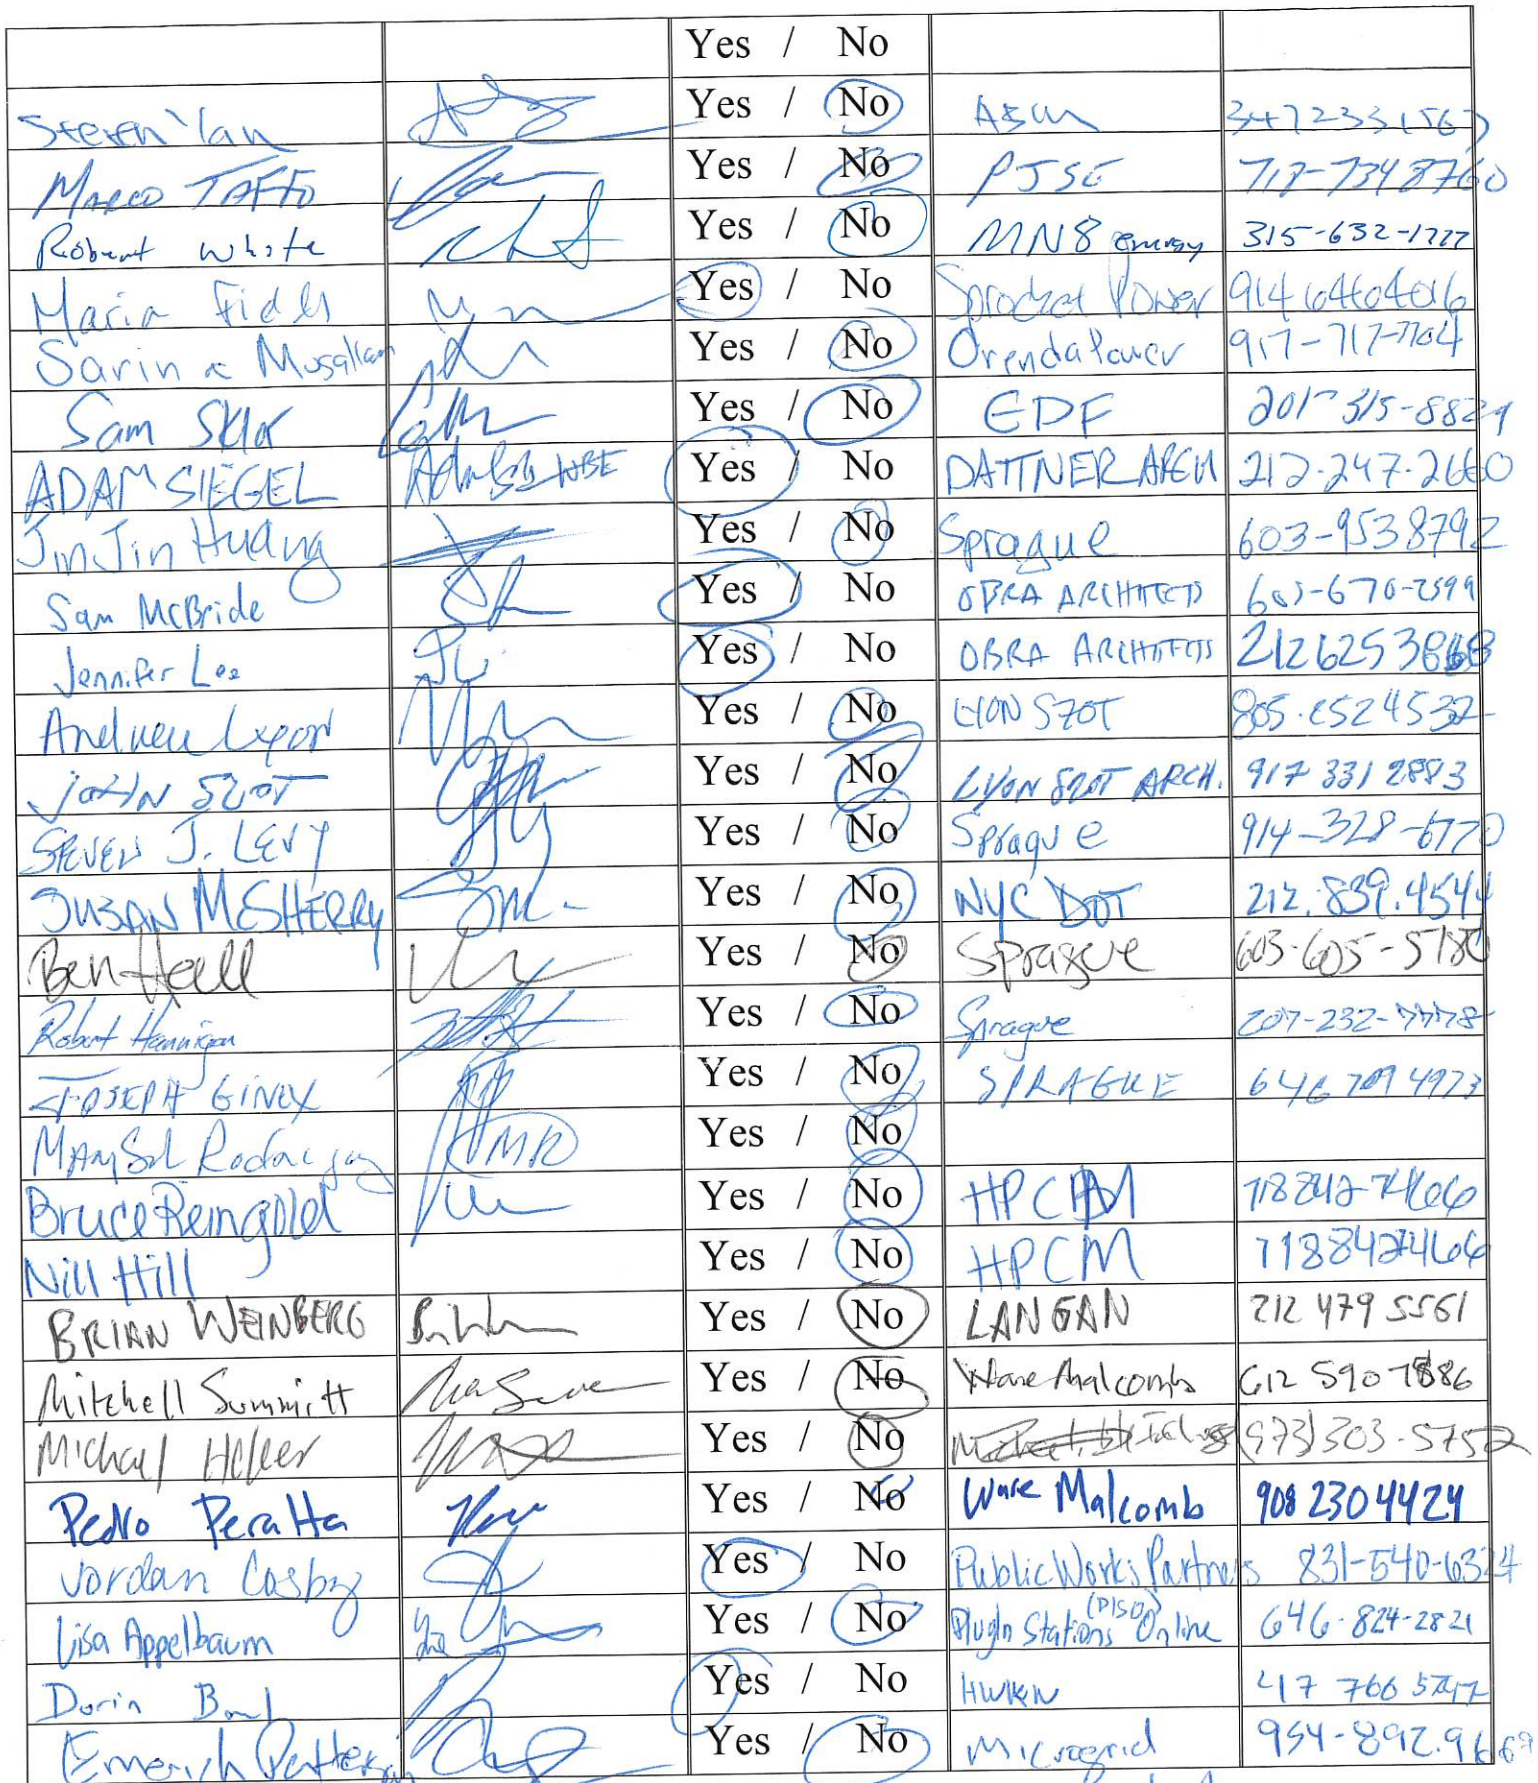 Yes / No
Steven Yan Yes / No 347 233 1567
MARCO TAFFO Yes / No PJSE 718-734 8760
Robert White Yes / No MN8 energy 315-632-1777
Maria Fields Yes / No Sprocket Power 914
Sarina Musallam Yes / No Orenda Power 917-717-7104
Sam Sklar Yes / No EDF 201-315-8829
ADAM SIEGEL Yes / No DATTNER ARCH 212-247-2660
JinJin Huang Yes / No Sprague 603-953 8792
Sam McBride Yes / No OBRA ARCHITECTS 603-670-2599
Jennifer Lee Yes / No OBRA ARCHITECTS 212 625 3868
Yes / No LYON SZOT
JOHN SZOT Yes / No LYON SZOT ARCH. 917 331 2883
STEVEN J. LEVY Yes / No Sprague 914-328-6770
SUSAN MCSHERRY Yes / No NYC DOT 212.839.4544
Ben Hall Yes / No Sprague 603-605-5180
Robert Hannigan Yes / No Sprague 207-232-7778
JOSEPH GINEX Yes / No SPRAGUE 646 709 4973
Yes / No
Bruce Reingold Yes / No HPCM 718 842 7466
Nill Hill Yes / No HPCM 718 842 7466
BRIAN WEINBERG Yes / No LANGAN 212 479 5561
Mitchell Summitt Yes / No Ware Malcomb 612 590 7886
Michael Yes / No (973) 303-5752
Pedro Peralta Yes / No Ware Malcomb 908 230 4424
Jordan Cosby Yes / No Public Works Partners 831-540-6324
Lisa Appelbaum Yes / No PlugIn Stations Online (PISO) 646-824-2821
Dorin Yes / No 766
Emerich Patterson Yes / No Microgrid 954-892.9669